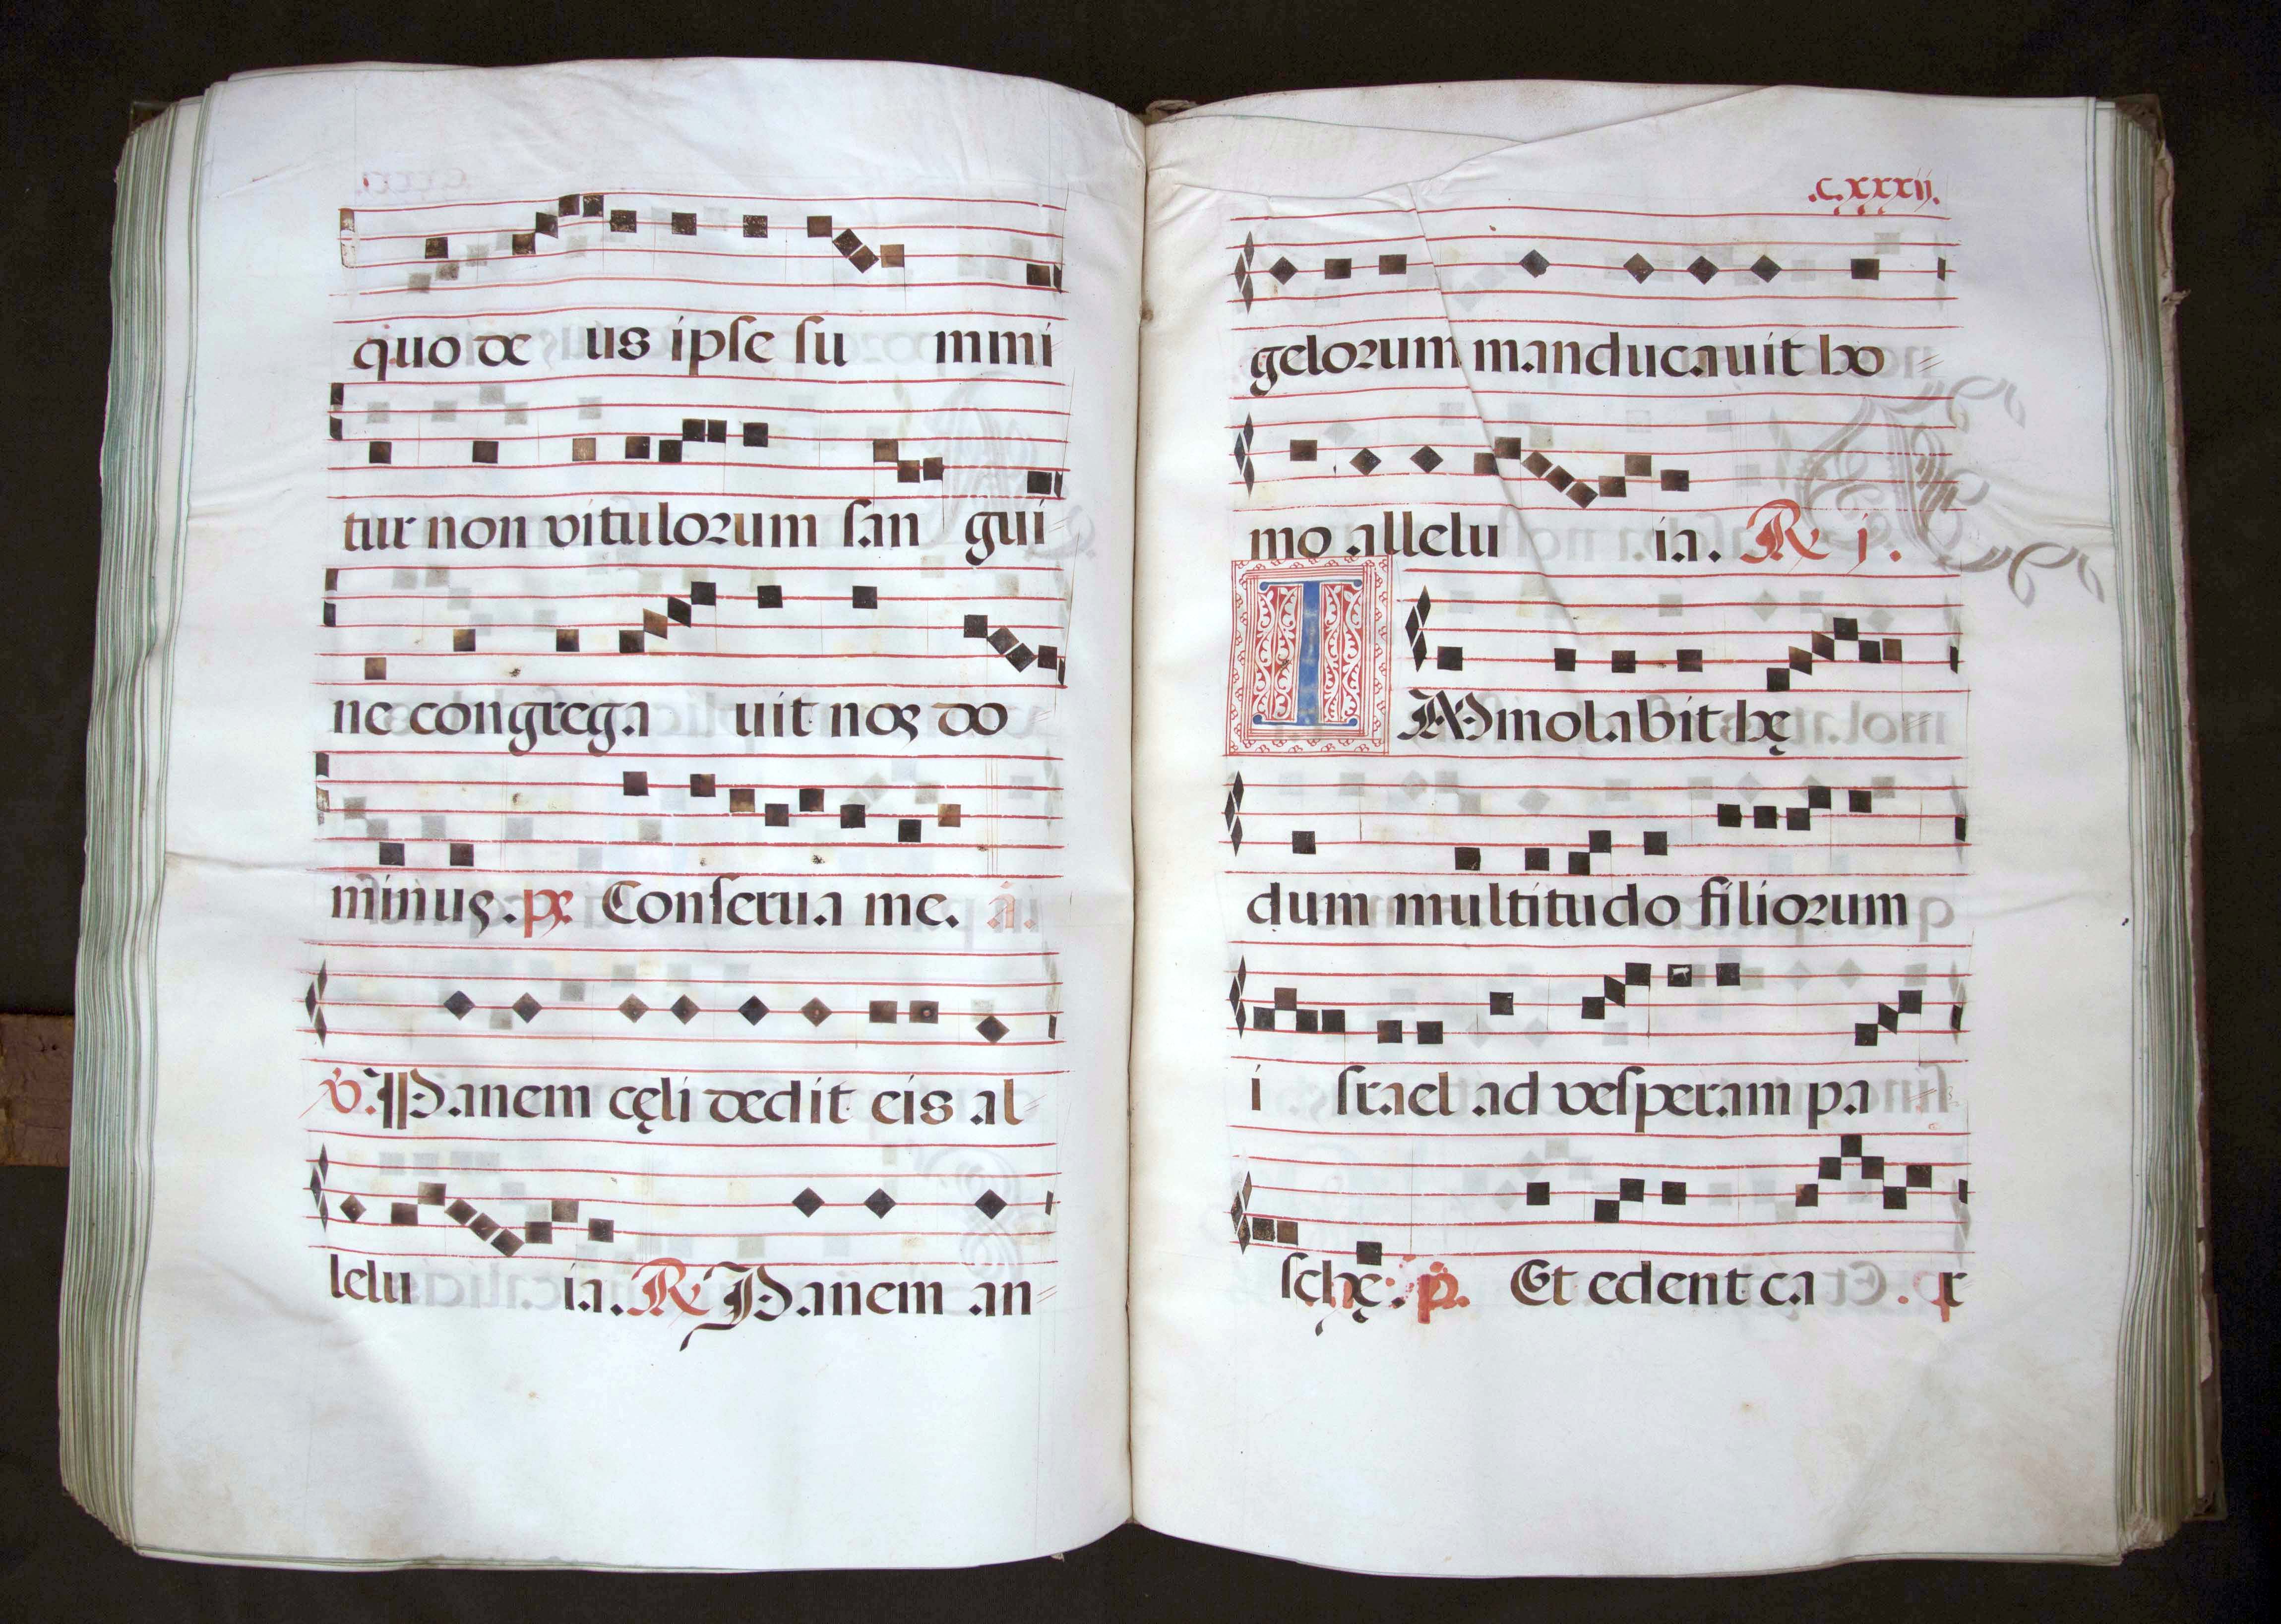 quo de us ipse su mmi
tur non vitulorum san gui
ne congrega uit nos do
minus. ps. Conserua me. a.
v. Panem cęli dedit eis al
lelu ia. R Panem an
.c.xxxij.
gelorum manducauit ho
mo allelu ia. R j.
IMmolabit hę
dum multitudo filiorum
i srael ad vesperam pa
schę. p. Et edent ca r